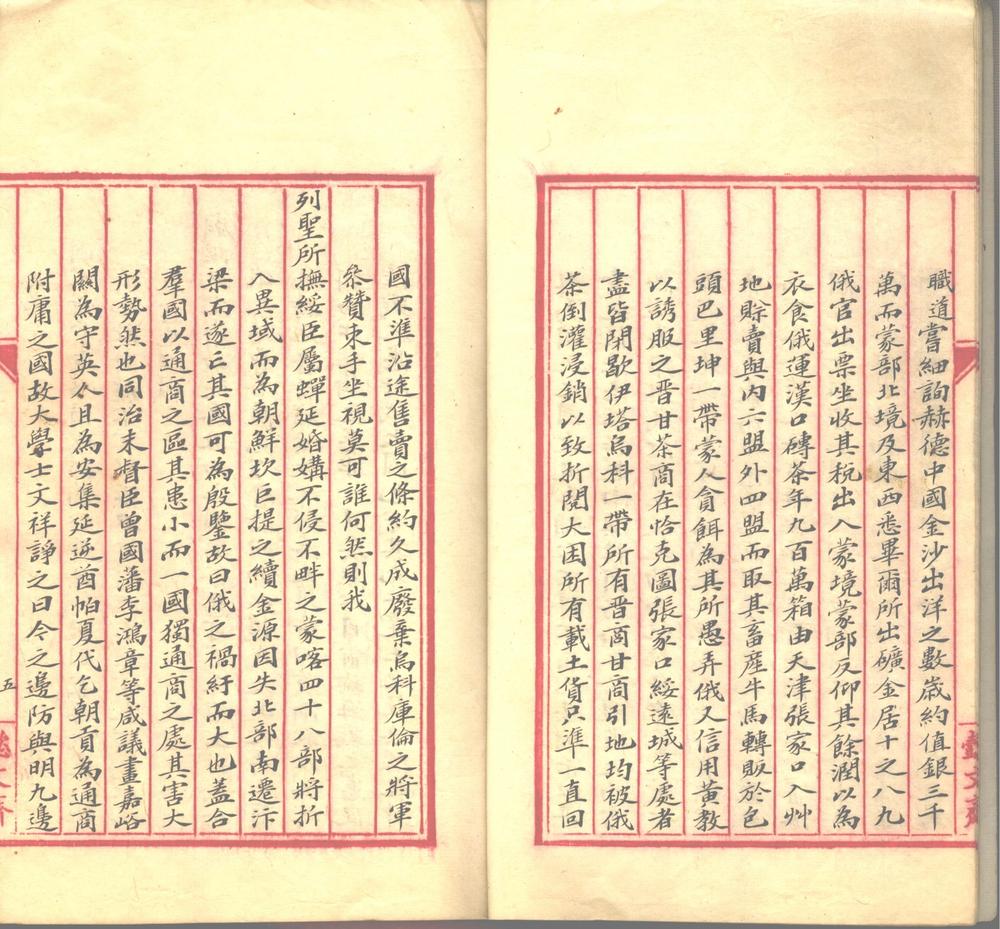 職道嘗細詢赫德中國金沙出洋之數歲約值銀三千
萬而蒙部北境及東西悉畢爾所出礦金居十之八九
俄官出票坐收其稅出入蒙境蒙部反仰其餘潤以為
衣食俄運漢口磚茶年九百萬箱由天津張家口入艸
地賒賣與內六盟外四盟而取其畜產牛馬轉販於包
頭巴里坤一帶蒙人貪餌為其所愚弄俄又信用黃教
以誘服之晉甘茶商在恰克圖張家口綏遠城等處者
盡皆閉歇伊塔烏科一帶所有晉商甘商引地均被俄
茶倒灌浸銷以致折閱大困所有載土貨只準一直回
國不準沿途售賣之條約久成廢棄烏科庫倫之將軍
叅贊束手坐視莫可誰何然則我
列聖所撫綏臣屬蟬延婚媾不侵不畔之蒙喀四十八部將折
入異域而為朝鮮坎巨提之續金源因失北部南遷汴
梁而遂亡其國可為殷鑒故曰俄之禍紆而大也蓋合
羣國以通商之區其患小而一國獨通商之處其害大
形勢然也同治末督臣曾國藩李鴻章等咸議畫嘉峪
關為守英人且為安集延逆酋帕夏代乞朝貢為通商
附庸之國故大學士文祥諍之曰今之邊防與明九邊
五
懿文齋